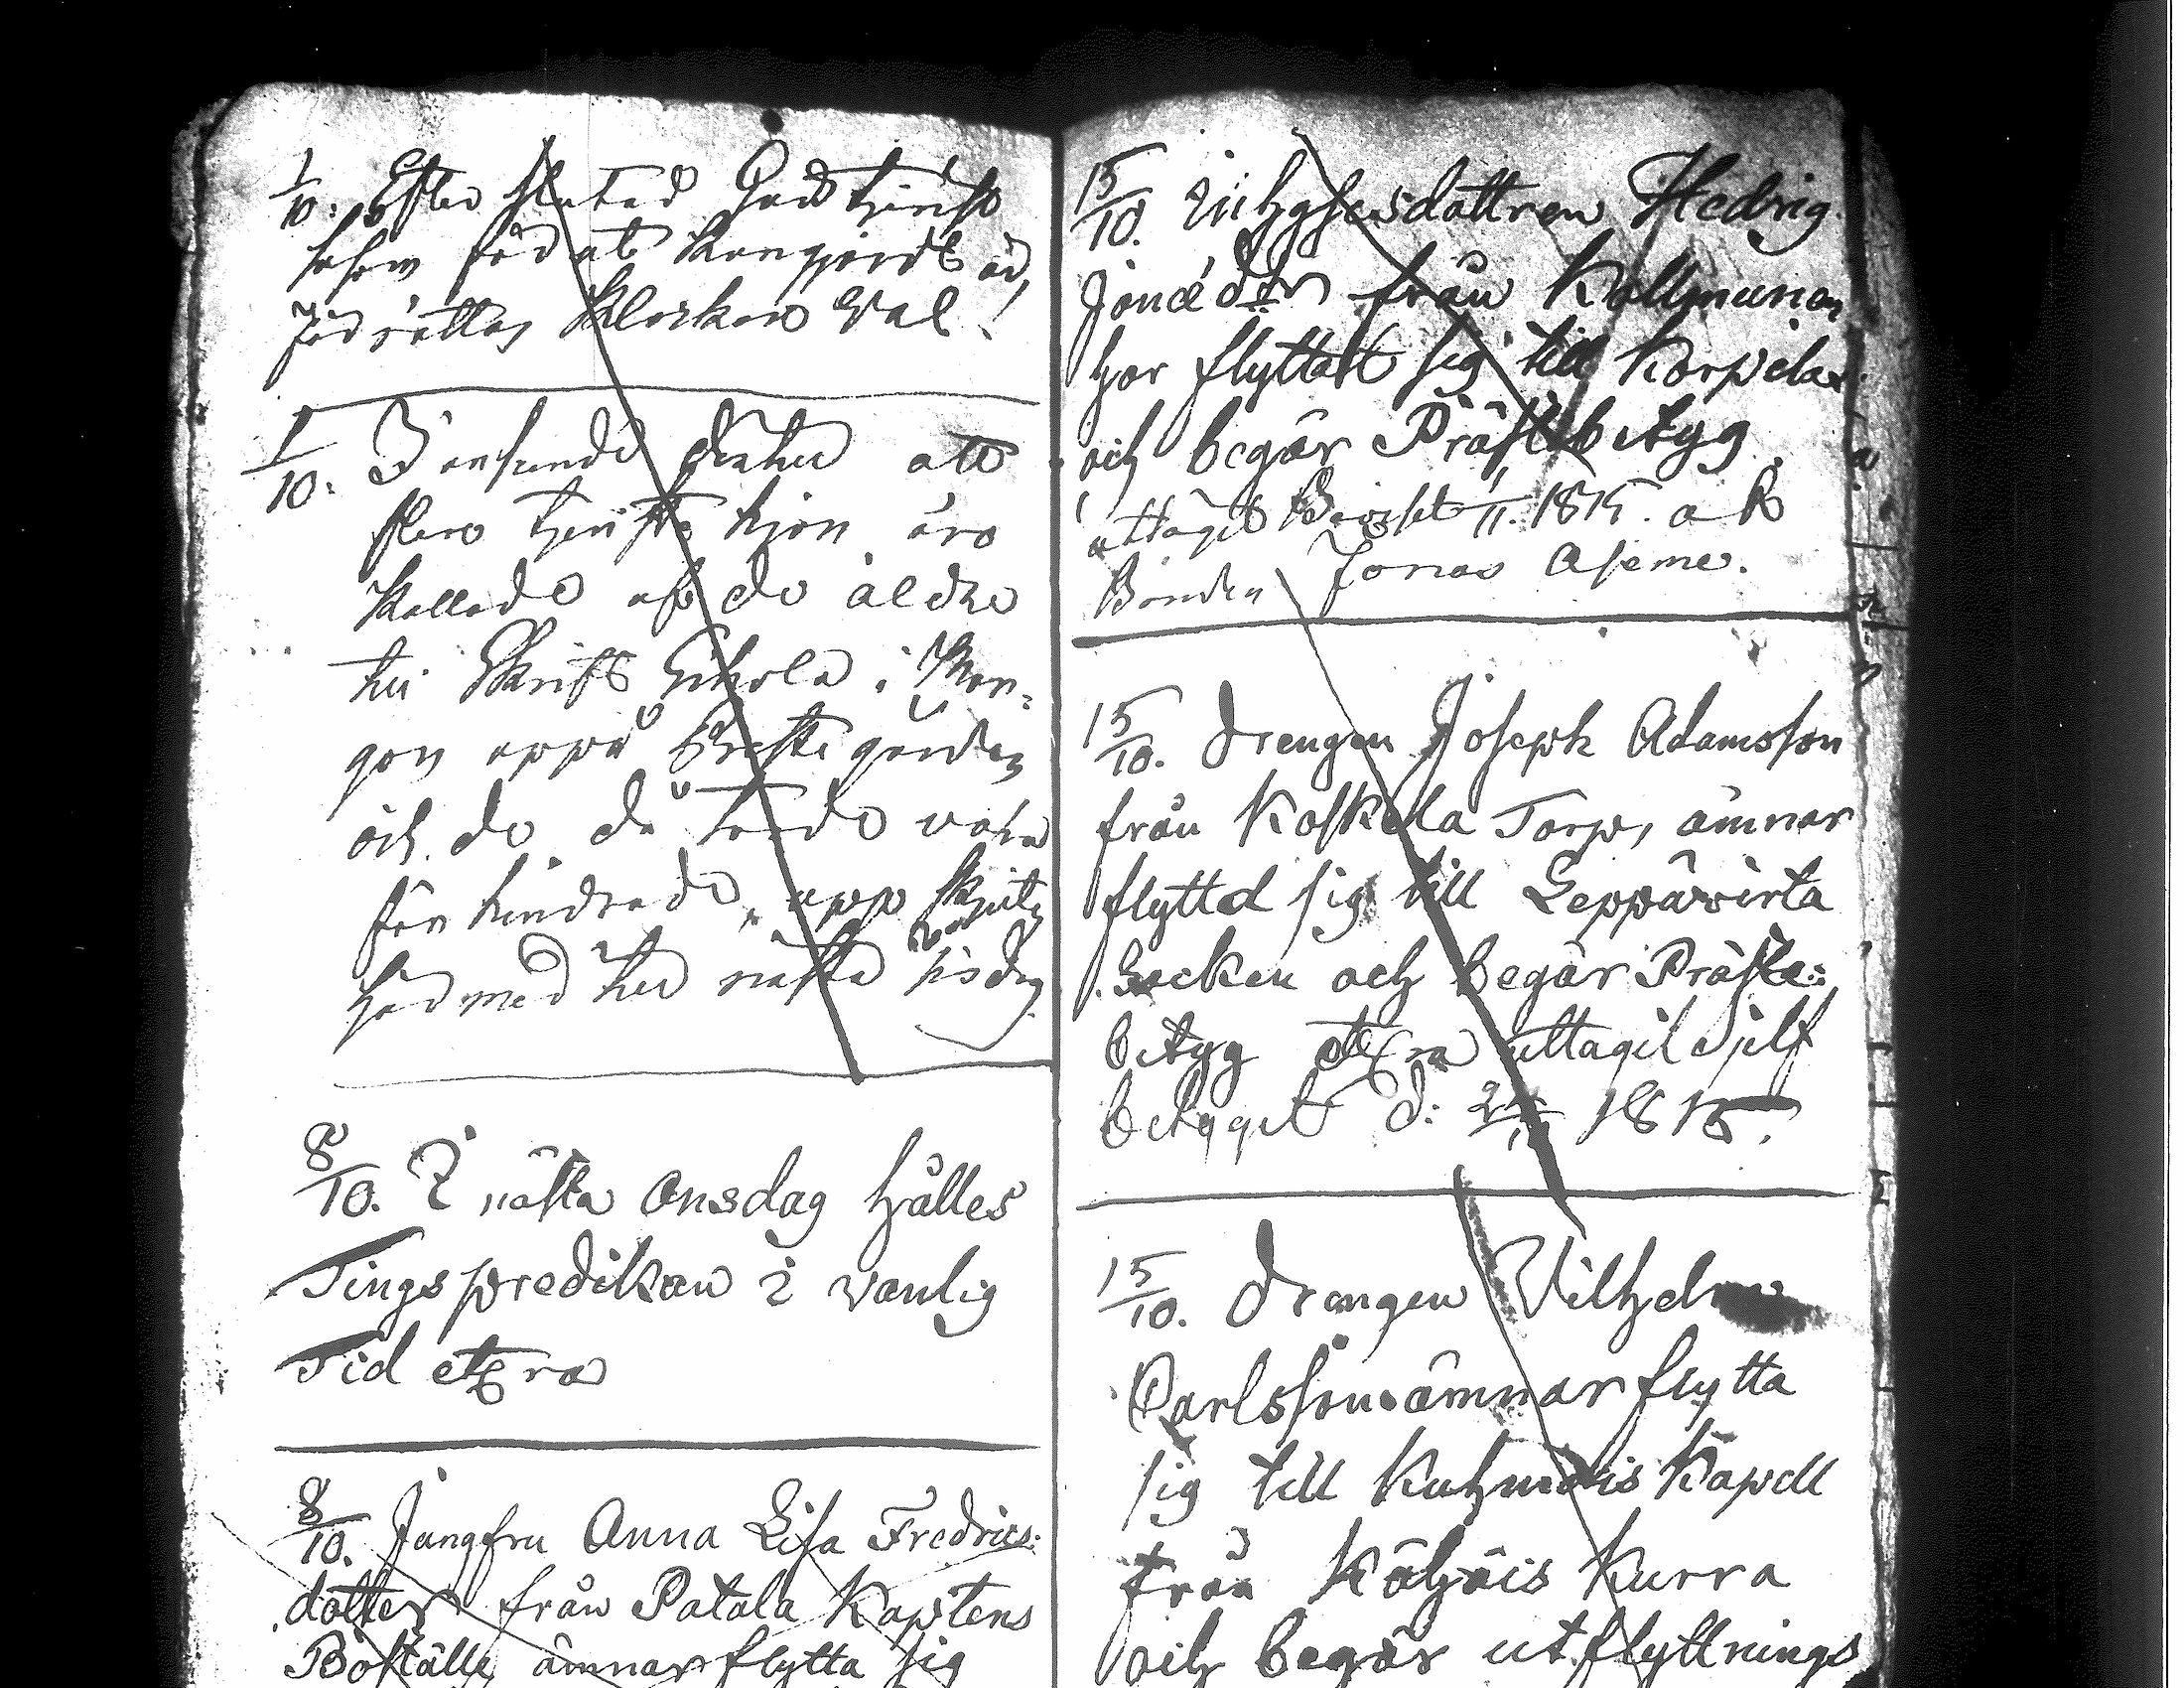 1/10. Efter slutad Gudstjenst
som förut kungjordt är,
förrättas Klockare Val!
1/10. I anseende dertill att
flere tjenste hjon äro
kallade af de äldre
till Skrift Schola i Mor-
gon uppå Prestegården
och de då torde vara
förhindrade, uppskjutes
härmed till nästa tisdag
8/10. I nästa Onsdag hålles
Tingspredikan i vanlig
Tid etc:ra
8/10. Jungfru Anna Lisa Fredrics:
dotter från Patala Kaptens
Boställe ämnar flytta sig
15/10. Hedvig
från
har flyttat sig till Korpelax
och begär Prästbetyg.
uttagit 1815. af
Bonden Jonas
15/10. Drengen Joseph Adamsson
från Koskela Torp, ämnar
flytta sig till Leppävirta
Socken och begär Präste:
betyg etc:ra uttagit Sjelf
betyget d: 1815.
15/10. Drengen Vilhelm
Carlsson ämnar flytta
sig till Kuhmois Kapell
från Kurra
och begär utflyttnings